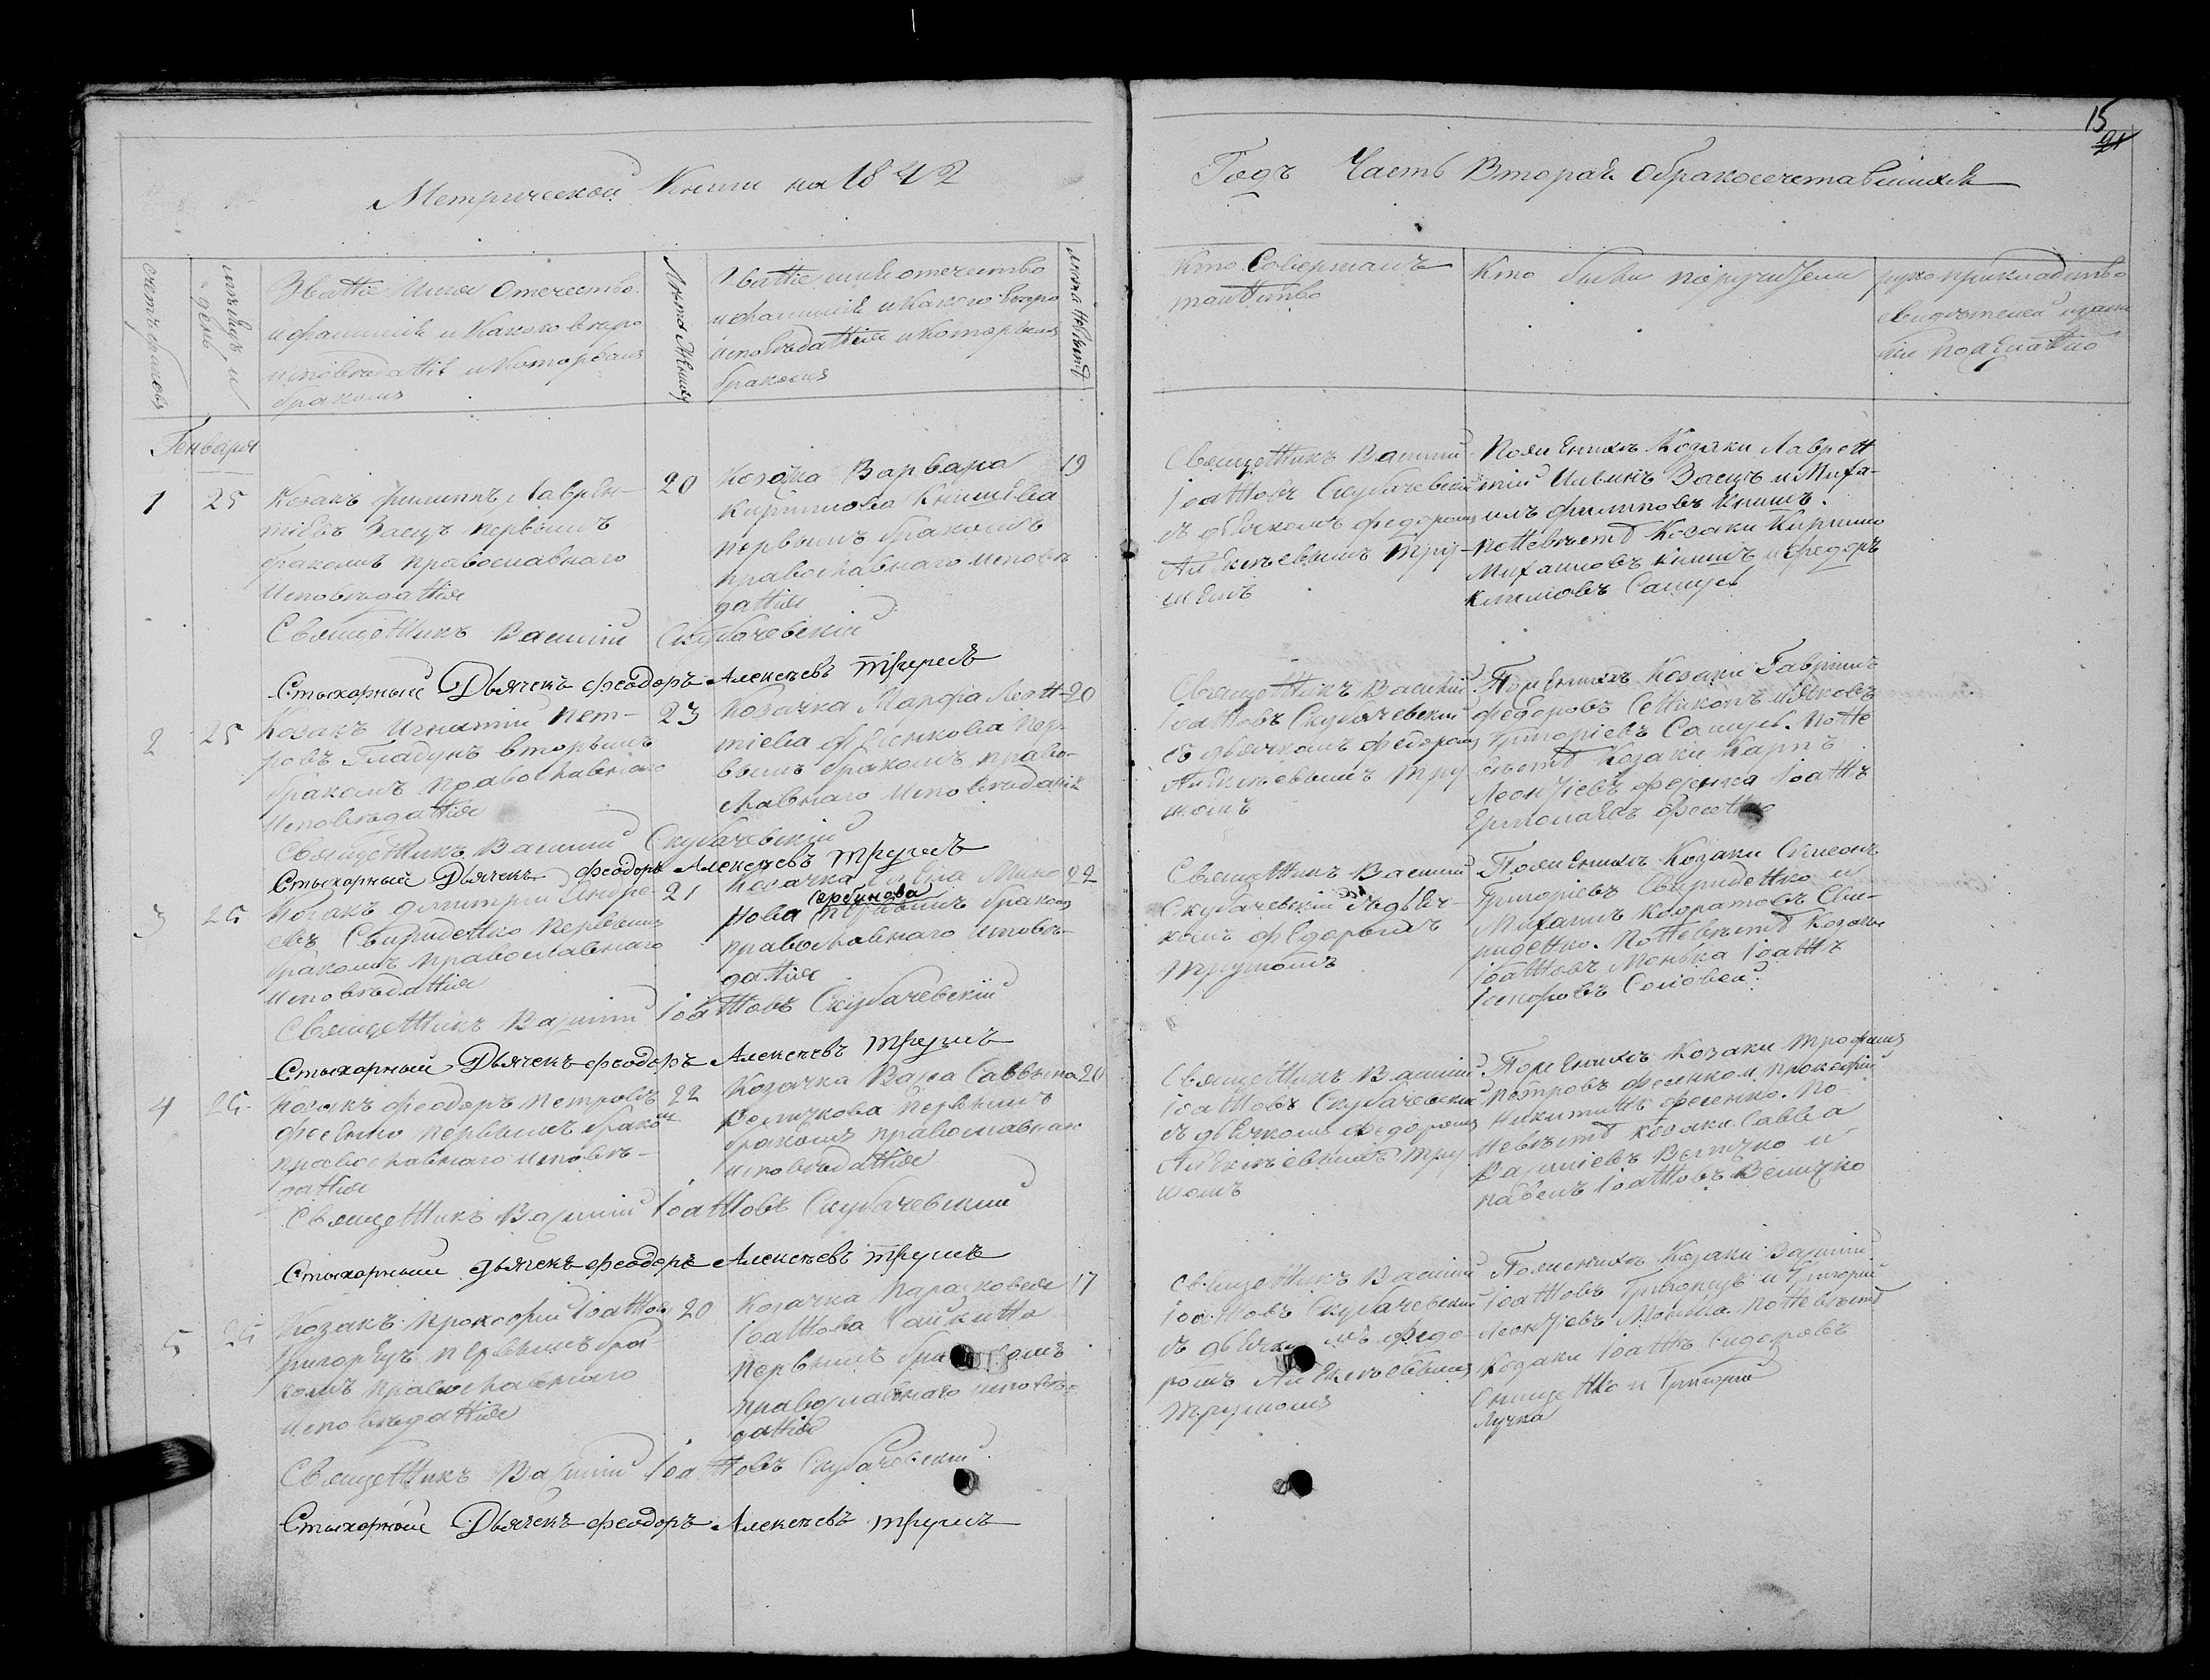 15
21
Метрической Книги на 1842
Годъ Часть Вторая Обракосочетавшихся
счетъ браковъ
мѣсяцъ и день
Званіе Имя Отечество
и фамилія и Какого вѣро
исповѣданія и Которымъ
бракомъ
Лѣта Жениху
Званіе имя отечество
и фамилія и какого вѣро
исповѣданія и которымъ
бракомъ
лѣта Невѣстѣ
Кто Совершалъ
таинство
Кто были поручители
рукоприкладство
свидѣтелей
по желанію
Генваря
1
25
Козакъ Филиппъ Лаврен-
тіевъ Заецъ первымъ
бракомъ православнаго
Исповѣданія
20
Козачка Варвара
Кирилова Книшева
первымъ бракомъ
православнаго исповѣ
данія
19
Священникъ Василій
Іоанновъ Скубачевскій
съ дьячкомъ Федоромъ
Алексѣевымъ Тру-
шемъ
По женихѣ Козаки Лаврен
тій Ильинъ Заецъ и Миха-
илъ Филиповъ Книшъ.
По невѣстѣ Козаки Кирило
Михаиловъ Книшъ и Федоръ
Климовъ Самусь
Священникъ Василій Скубачевскій
Стыхарный Дьячекъ Феодоръ Алексѣевъ Трушъ
2
25
Козакъ Игнатій Пет-
ровъ Гладунъ вторымъ
бракомъ православнаго
Исповѣданія
23
Козачка Марфа Леон-
тіева Фесенкова пер-
вымъ бракомъ право-
славнаго Исповѣданія
20
Священникъ Василій
Іоанновъ Скубачевскій
съ дьячкомъ Федоромъ
Алексѣевымъ Тру
шомъ
По женихѣ Козаки Гавріилъ
Федоровъ и Яковъ
Григоріевъ Самусь. По не
вѣстѣ Козаки Карпъ
Леонтіевъ Фесенко Іоаннъ
Ермолаевъ
Священникъ Василій Скубачевскій
Стыхарный Дьячекъ Феодоръ Алексѣевъ Трушъ
3
25
Козакъ Димитрій Андре-
евъ Свириденко первымъ
бракомъ православнаго
Исповѣданія
21
Козачка
нова Сербинова первымъ бракомъ
православнаго исповѣ-
данія
22
Священникъ Василій
Скубачевскій съ дьяч-
комъ Федорымъ
Трушомъ
По женихѣ Козаки Симеонъ
Григоріевъ Свириденко и
Михаилъ Кодратовъ Сви-
риденко. По невѣстѣ Козаки
Іоанновъ Монька Іоаннъ
Соловей.
Священникъ Василій Іоанновъ Скубачевскій
Стыхарный Дьячекъ Феодоръ Алексѣевъ Трушъ
4
25
Козакъ Феодоръ Петровъ
Фесенко первымъ брако
мъ
православнаго исповѣ-
данія
22
Козачка Васа Саввина
Величкова первымъ
бракомъ православнаго
исповѣданія
20
Священникъ Василій
Іоанновъ Скубачевскій
съ дьячкомъ Федоромъ
Алексѣевымъ Тру
шомъ
По женихѣ Козаки Трофимъ
Петровъ Фесенко и Прокофій
Никитинъ Фесенко. По
невѣстѣ Козаки Савва
Василіевъ Величко и
Павелъ Іоанновъ Величко
Священникъ Василій Іоанновъ Скубачевскій
Стыхарный Дьячекъ Феодоръ Алексѣевъ Трушъ
5
25
Козакъ Прокофій Іоанновъ
первымъ бра-
комъ православнаго
Исповѣданія
20
Козачка Парасковея
Іоаннова
первымъ бракомъ
православнаго исповѣ-
данія
17
Священникъ Василій
Іоанновъ Скубачевскій
съ дьячкомъ Федо-
ромъ Алексѣевымъ
Трушомъ
По женихѣ Козаки Василій
Іоанновъ и Григорій
Леонтіевъ Монька По невѣстѣ
Козаки Іоаннъ Сидоровъ
и Григорій
Лучка
Священникъ Василій Іоанновъ Скубачевскій
Стыхарный Дьячекъ Феодоръ Алексѣевъ Трушъ